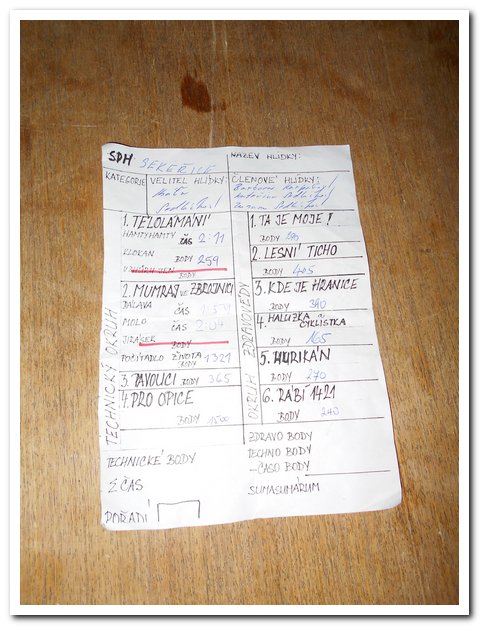 SDH SEKEŘICE
NÁZEV HLÍDKY:
KATEGORIE
VELITEL HLÍDKY:
ČLENOVÉ HLÍDKY:
TECHNICKÝ OKRUH
1. TĚLOLAMÁNÍ
HAMTYHAMTY ČAS 2:11
KLOKAN BODY 259
BODY
2. MUMRAJ VE ZBROJNICI
ČAS
MOLO ČAS 2:04
BODY
POČÍTADLO ŽIVOTA BODY 1321
3. PAVOUCI BODY 365
4. PRO OPICE
BODY 1500
TECHNICKÉ BODY
Σ ČAS
POŘADÍ
OKRUH ZDRAVOVĚDY
1. TA JE MOJE!
BODY
2. LESNÍ TICHO
BODY 405
3. KDE JE HRANICE
BODY 340
4. HALUZKA a CYKLISTKA
BODY 165
5. HURIKÁN
BODY 270
6. RÁBÍ 1421
BODY 240
ZDRAVO BODY
TECHNO BODY
-ČASO BODY
SUMASUMÁRUM